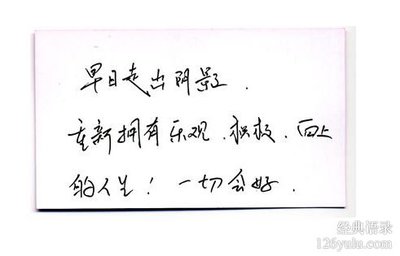 早日走出阴影.
重新拥有乐观.积极.向上
的人生！一切会好.
经典语录
126yulu.com